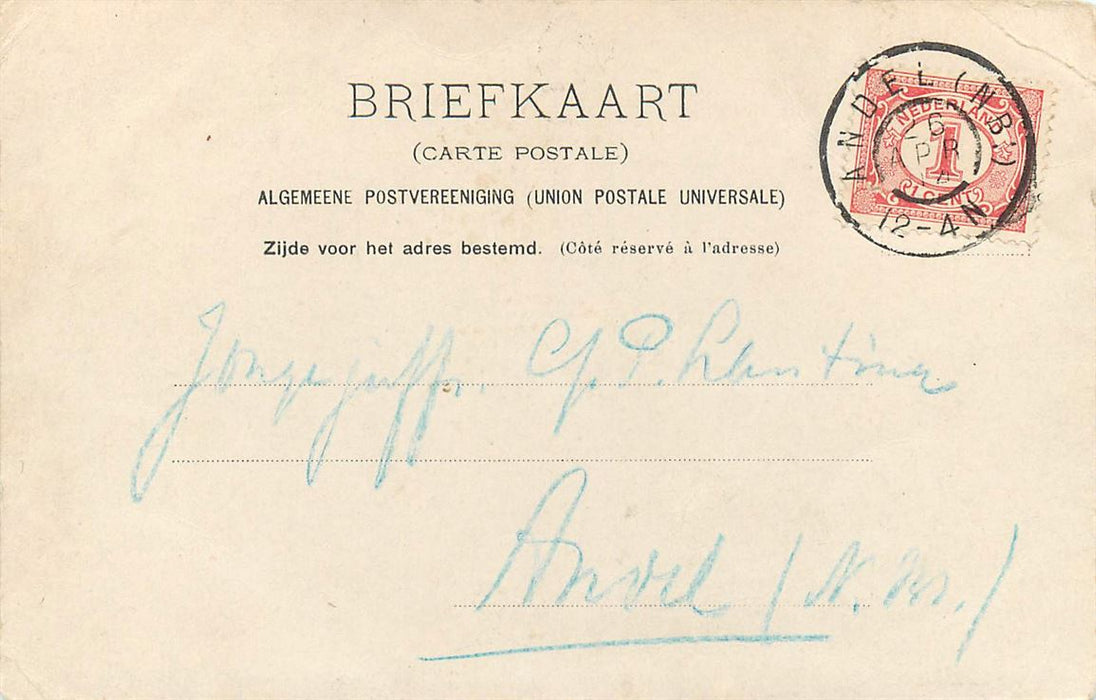 BRIEFKAART
(CARTE POSTALE)
ALGEMEENE POSTVEREENIGING (UNION POSTALE UNIVERSALE)
Zijde voor het adres bestemd. (Côté réservé à l'adresse)
ANDEL (NB:)
6
APR
12-4N
NEDERLAND
1
1 CENT
Jongejuffr. P. Lantinga
Andel (N. Br.)